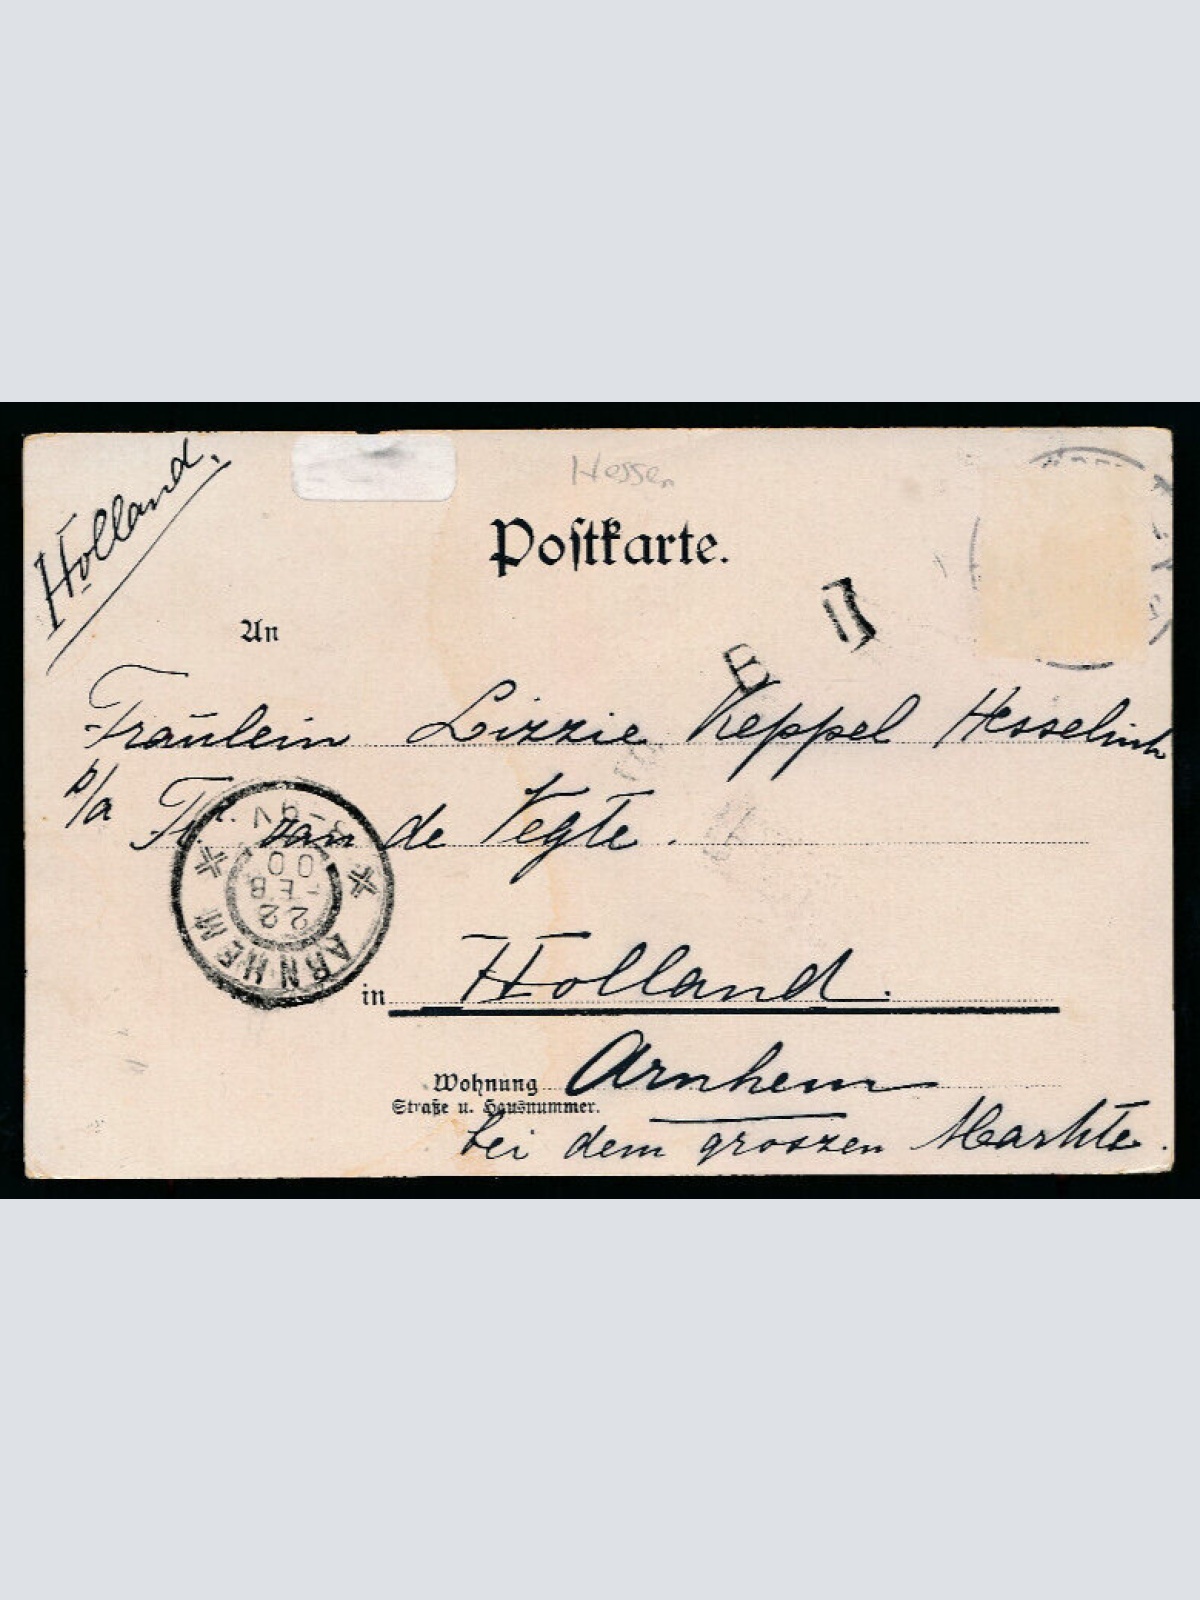 Holland.
Hessen
Postkarte.
An
Fräulein Lizzie Keppel Hesselink
p/a Fr. van de Vegte.
ARNHEM
22
FEB
00
8-9V
in Holland.
Wohnung Arnhem
Straße u. Hausnummer.
bei dem groszen Markte.